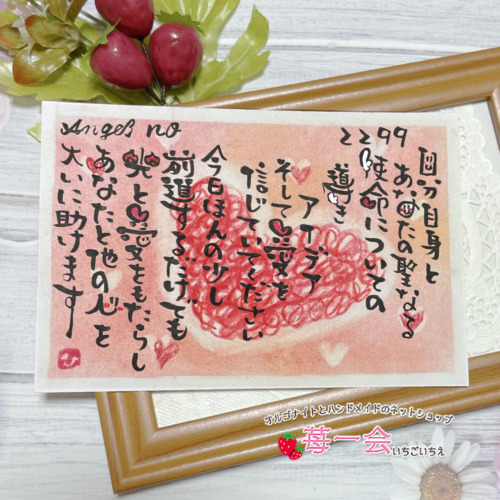 Angel no
2299
自分自身と
あなたの聖なる
使命についての
導き
アイデア
そして愛を
信じていてください
今日ほんの少し
前進するだけでも
光と愛をもたらし
あなたと他の人を
大いに助けます
オルゴナイトとハンドメイドのネットショップ
苺一会いちごいちえ